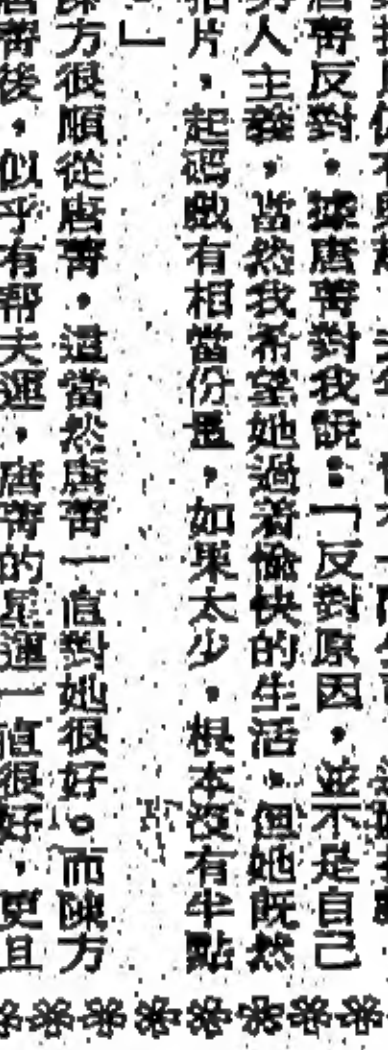 唐菁反對，據唐菁對我說：「反對原因，並不是自己
男人主義，當然我希望她過着愉快的生活，但她既然
拍片，起碼戲有相當份量，如果太少，根本沒有半點
」
陳方很順從唐菁，這當然唐菁一直對她很好。而陳方
唐菁後，似乎有帮夫運，唐菁的星運一直很好，更且